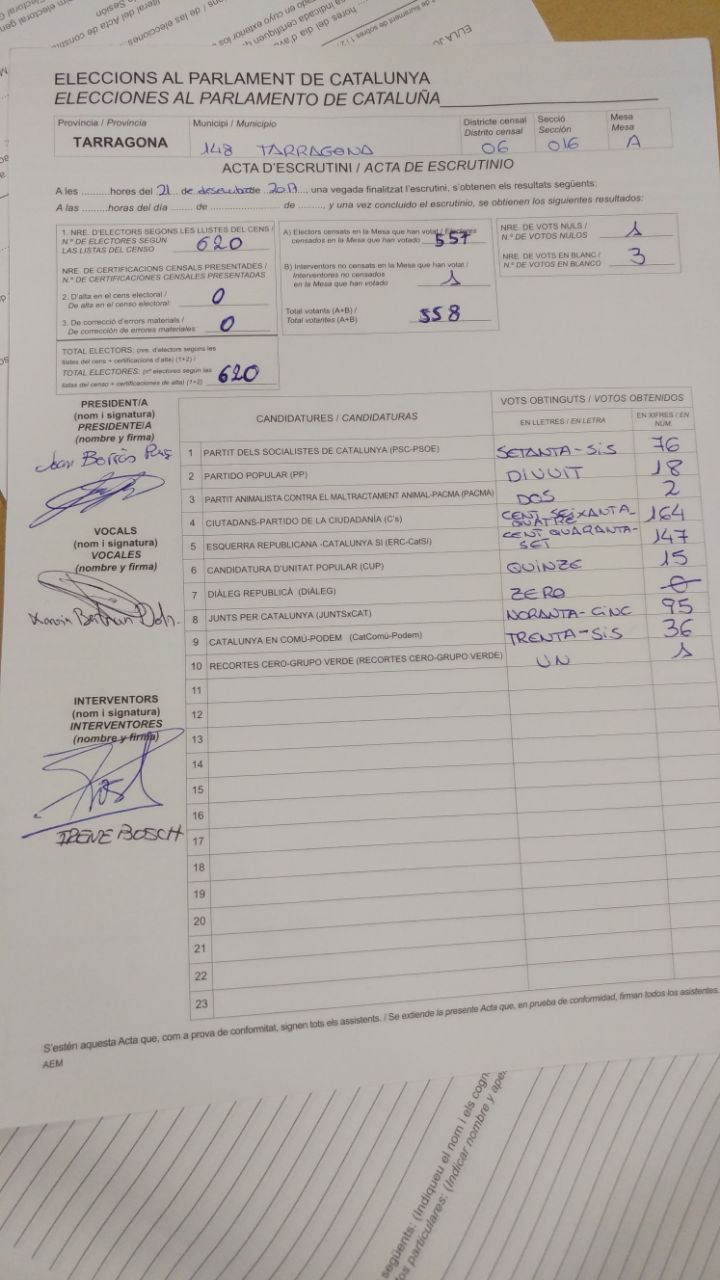 ELECCIONS AL PARLAMENT DE CATALUNYA
ELECCIONES AL PARLAMENTO DE CATALUÑA
Província / Provincia
TARRAGONA
Municipi / Municipio
148 TARRAGONA
Districte censal
Distrito censal
06
Secció
Sección
016
Mesa
Mesa
A
ACTA D'ESCRUTINI / ACTA DE ESCRUTINIO
A les ..........hores del 21 de desembre de 2017, una vegada finalitzat l'escrutini, s'obtenen els resultats següents:
A las ..........horas del día ........ de .......................... de .........., y una vez concluido el escrutinio, se obtienen los siguientes resultados:
1. NRE. D'ELECTORS SEGONS LES LLISTES DEL CENS /
N.º DE ELECTORES SEGÚN
LAS LISTAS DEL CENSO
620
NRE. DE CERTIFICACIONS CENSALS PRESENTADES /
N.º DE CERTIFICACIONES CENSALES PRESENTADAS
2. D'alta en el cens electoral /
De alta en el censo electoral:
0
3. De correcció d'errors materials /
De corrección de errores materiales:
0
TOTAL ELECTORS: (nre. d'electors segons les
llistes del cens + certificacions d'alta) (1+2) /
TOTAL ELECTORES: (nº electores según las
listas del censo + certificaciones de alta) (1+2)
620
A) Electors censats en la Mesa que han votat / Electores
censados en la Mesa que han votado
557
B) Interventors no censats en la Mesa que han votat /
Interventores no censados
en la Mesa que han votado
1
Total votants (A+B) /
Total votantes (A+B)
558
NRE. DE VOTS NULS /
N.º DE VOTOS NULOS
1
NRE. DE VOTS EN BLANC /
N.º DE VOTOS EN BLANCO
3
PRESIDENT/A
(nom i signatura)
PRESIDENTE/A
(nombre y firma)
VOCALS
(nom i signatura)
VOCALES
(nombre y firma)
INTERVENTORS
(nom i signatura)
INTERVENTORES
(nombre y firma)
IRENE BOSCH
CANDIDATURES / CANDIDATURAS
VOTS OBTINGUTS / VOTOS OBTENIDOS
EN LLETRES / EN LETRA
EN XIFRES / EN NÚM.
1 PARTIT DELS SOCIALISTES DE CATALUNYA (PSC-PSOE) SETANTA-SIS 76
2 PARTIDO POPULAR (PP) DIVUIT 18
3 PARTIT ANIMALISTA CONTRA EL MALTRACTAMENT ANIMAL-PACMA (PACMA) DOS 2
4 CIUTADANS-PARTIDO DE LA CIUDADANÍA (C's) CENT SEIXANTA-QUATRE 164
5 ESQUERRA REPUBLICANA -CATALUNYA SI (ERC-CatSí) CENT QUARANTA-SET 147
6 CANDIDATURA D'UNITAT POPULAR (CUP) QUINZE 15
7 DIÀLEG REPUBLICÀ (DIÀLEG) ZERO 0
8 JUNTS PER CATALUNYA (JUNTSxCAT) NORANTA-CINC 95
9 CATALUNYA EN COMÚ-PODEM (CatComú-Podem) TRENTA-SIS 36
10 RECORTES CERO-GRUPO VERDE (RECORTES CERO-GRUPO VERDE) UN 1
11
12
13
14
15
16
17
18
19
20
21
22
23
S'estén aquesta Acta que, com a prova de conformitat, signen tots els assistents. / Se extiende la presente Acta que, en prueba de conformidad, firman todos los asistentes.
AEM
següents: (Indiqueu el nom i els cogn
los particulares: (Indicar nombre y ape